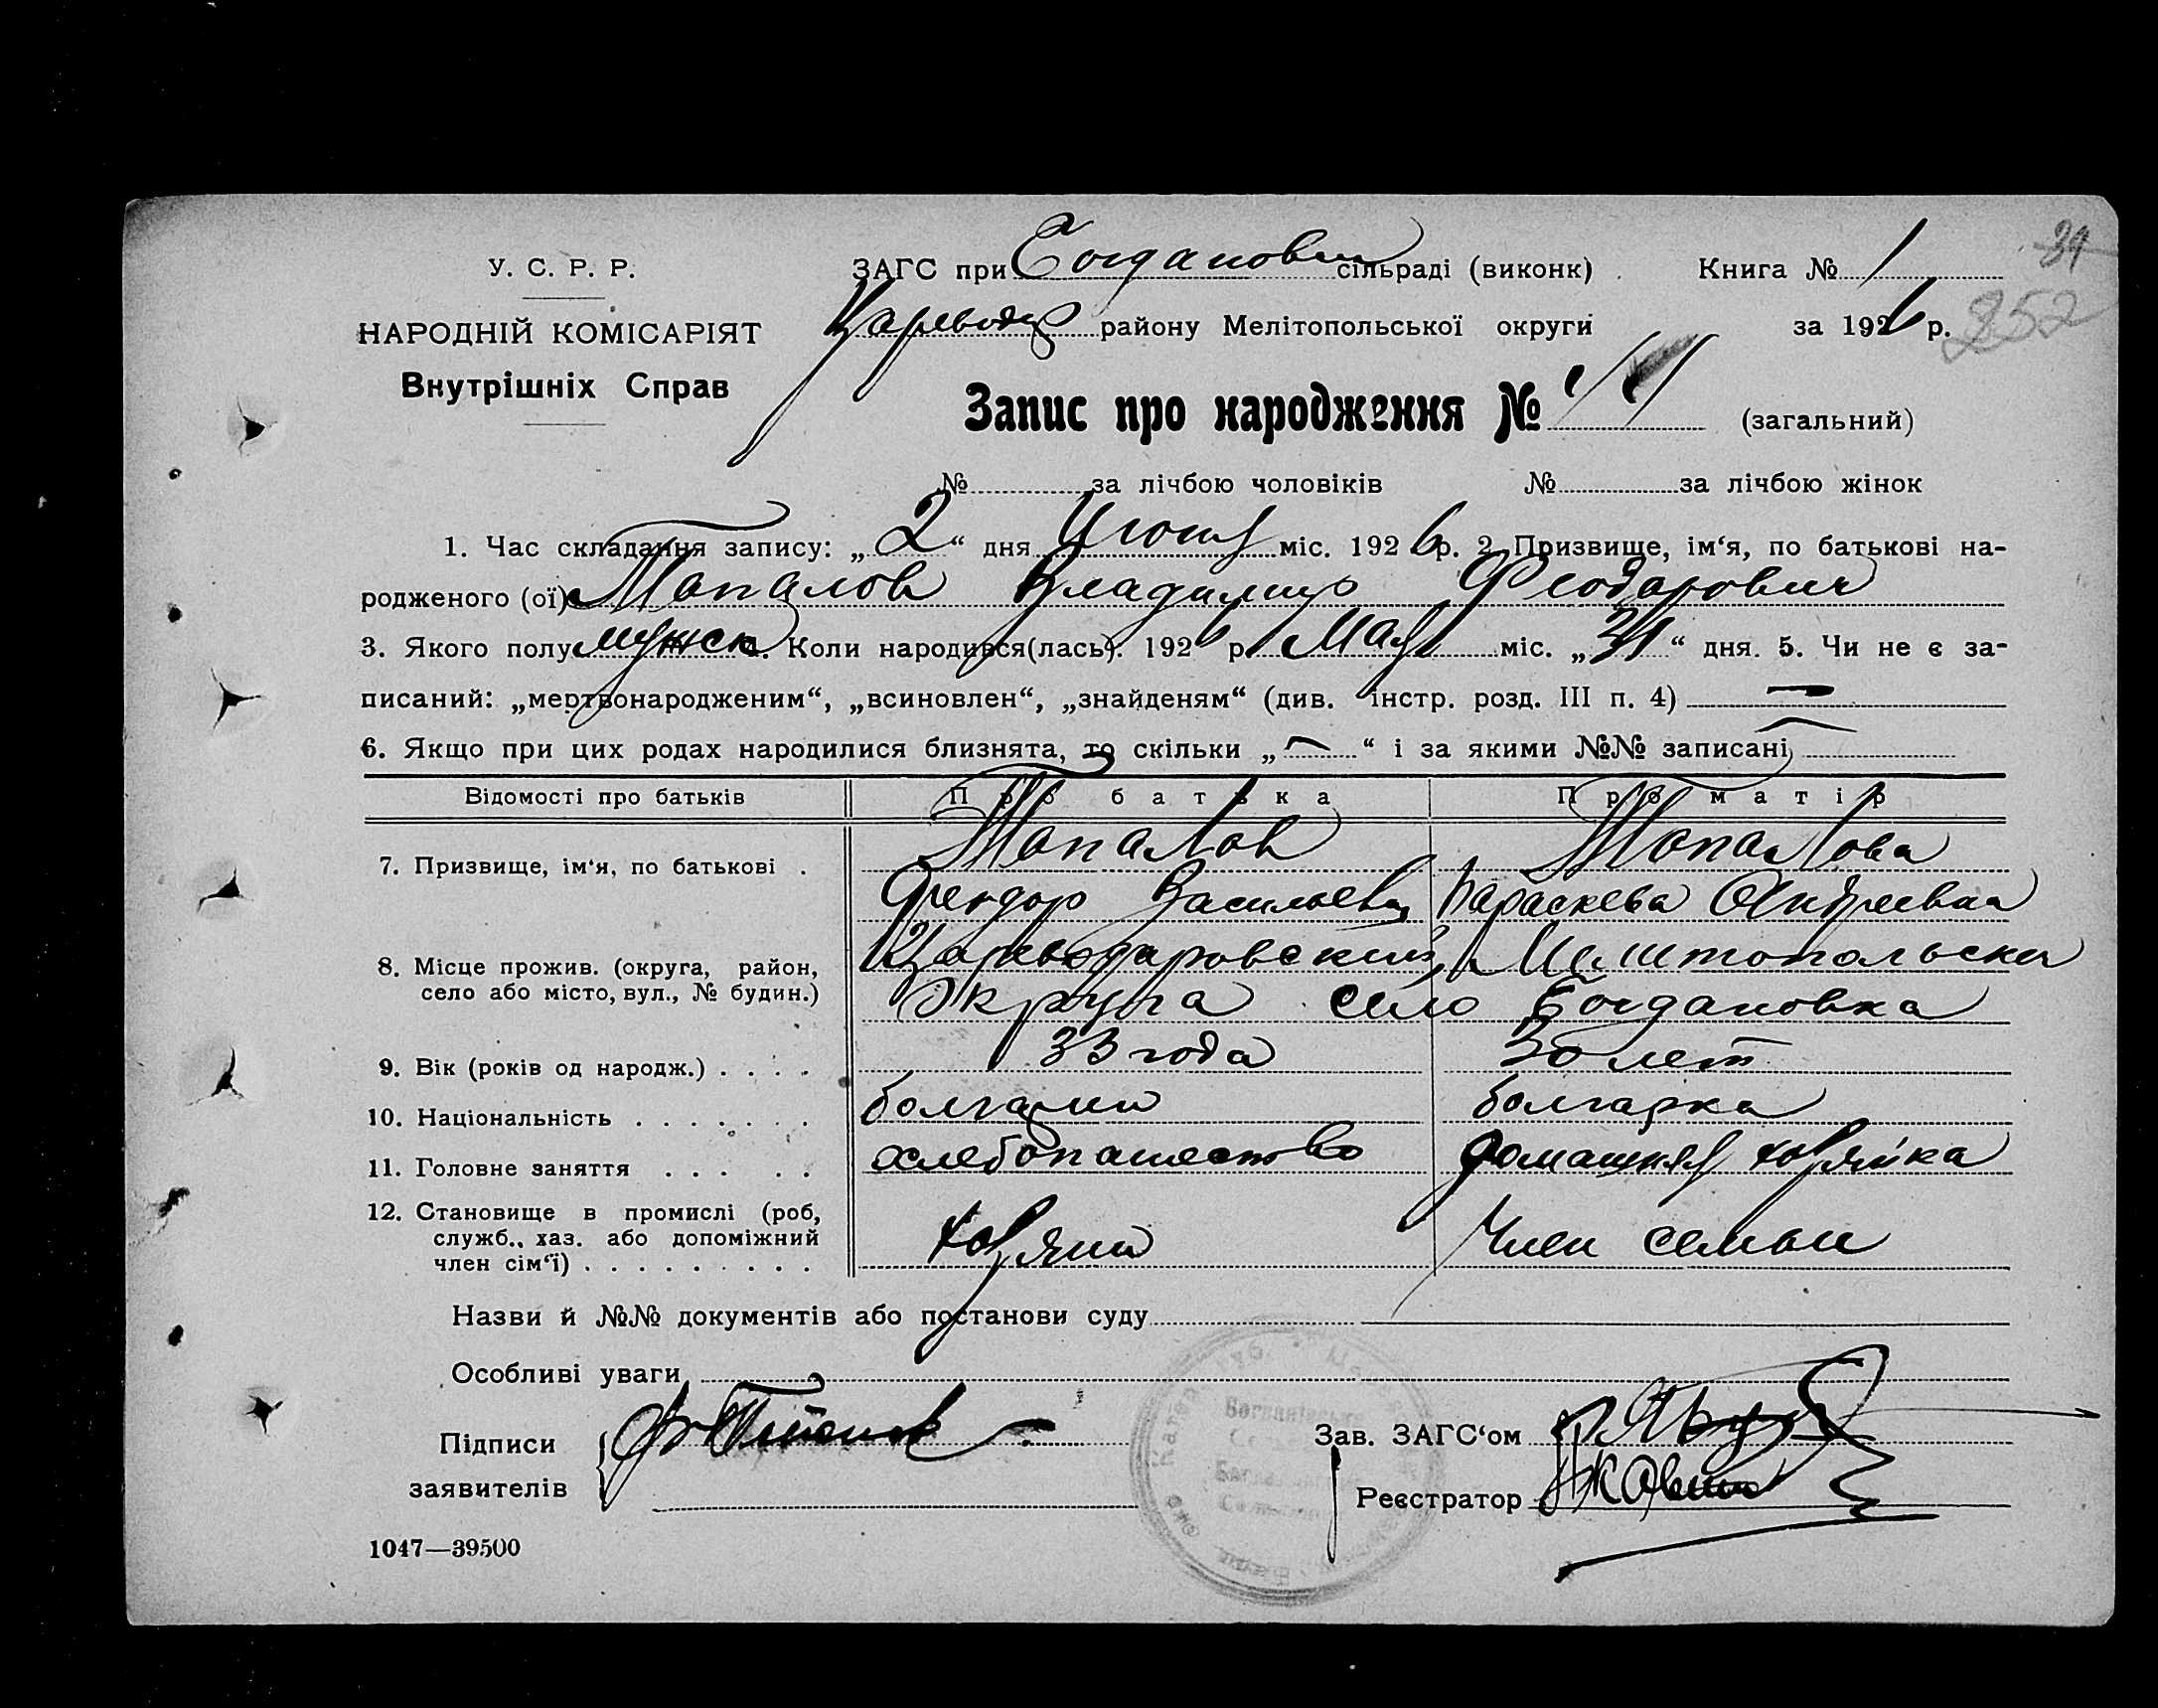 34
У. С. Р. Р.
ЗАГС при Богданович сільраді (виконк) Книга № 1
252
НАРОДНІЙ КОМІСАРІЯТ
Царевод району Мелітопольської округи за 1926 р.
Внутрішніх Справ
Запис про народження № 11 (загальний)
№ за лічбою чоловіків № за лічбою жінок
1. Час складання запису: „2“ дня Июня міс. 1926 р. 2 Призвище, ім‘я, по батькові на-
родженого (ої) Топалов Владимир Феодорович
3. Якого полу мужск. Коли народився(лась). 1926 р. Мая міс. „31“ дня. 5. Чи не є за-
писаний: „мертвонародженим“, „всиновлен“, „знайденям“ (див. інстр. розд. III п. 4) —
6. Якщо при цих родах народилися близнята, то скільки „—“ і за якими №№ записані —
Відомості про батьків Про батька Про матір
7. Призвище, ім‘я, по батькові . Топалов Топалова
Феодор Васильевич Параскева Андреевна
8. Місце прожив. (округа, район, село або місто, вул., № будин.) Цареводаровский Мелитопольска
Округа село Богдановка
9. Вік (років од народж.) . . . . 33 года 30 лет
10. Національність . . . . . . . болгарин болгарка
11. Головне заняття . . . . . хлебопашество домашняя хозяйка
12. Становище в промислі (роб, служб., хаз. або допоміжний член сім‘ї) . . . . . . . . . хозяин Член семьи
Назви й №№ документів або постанови суду
Особливі уваги
Підписи
Зав. ЗАГС‘ом
заявителів
Реєстратор
1047—39500